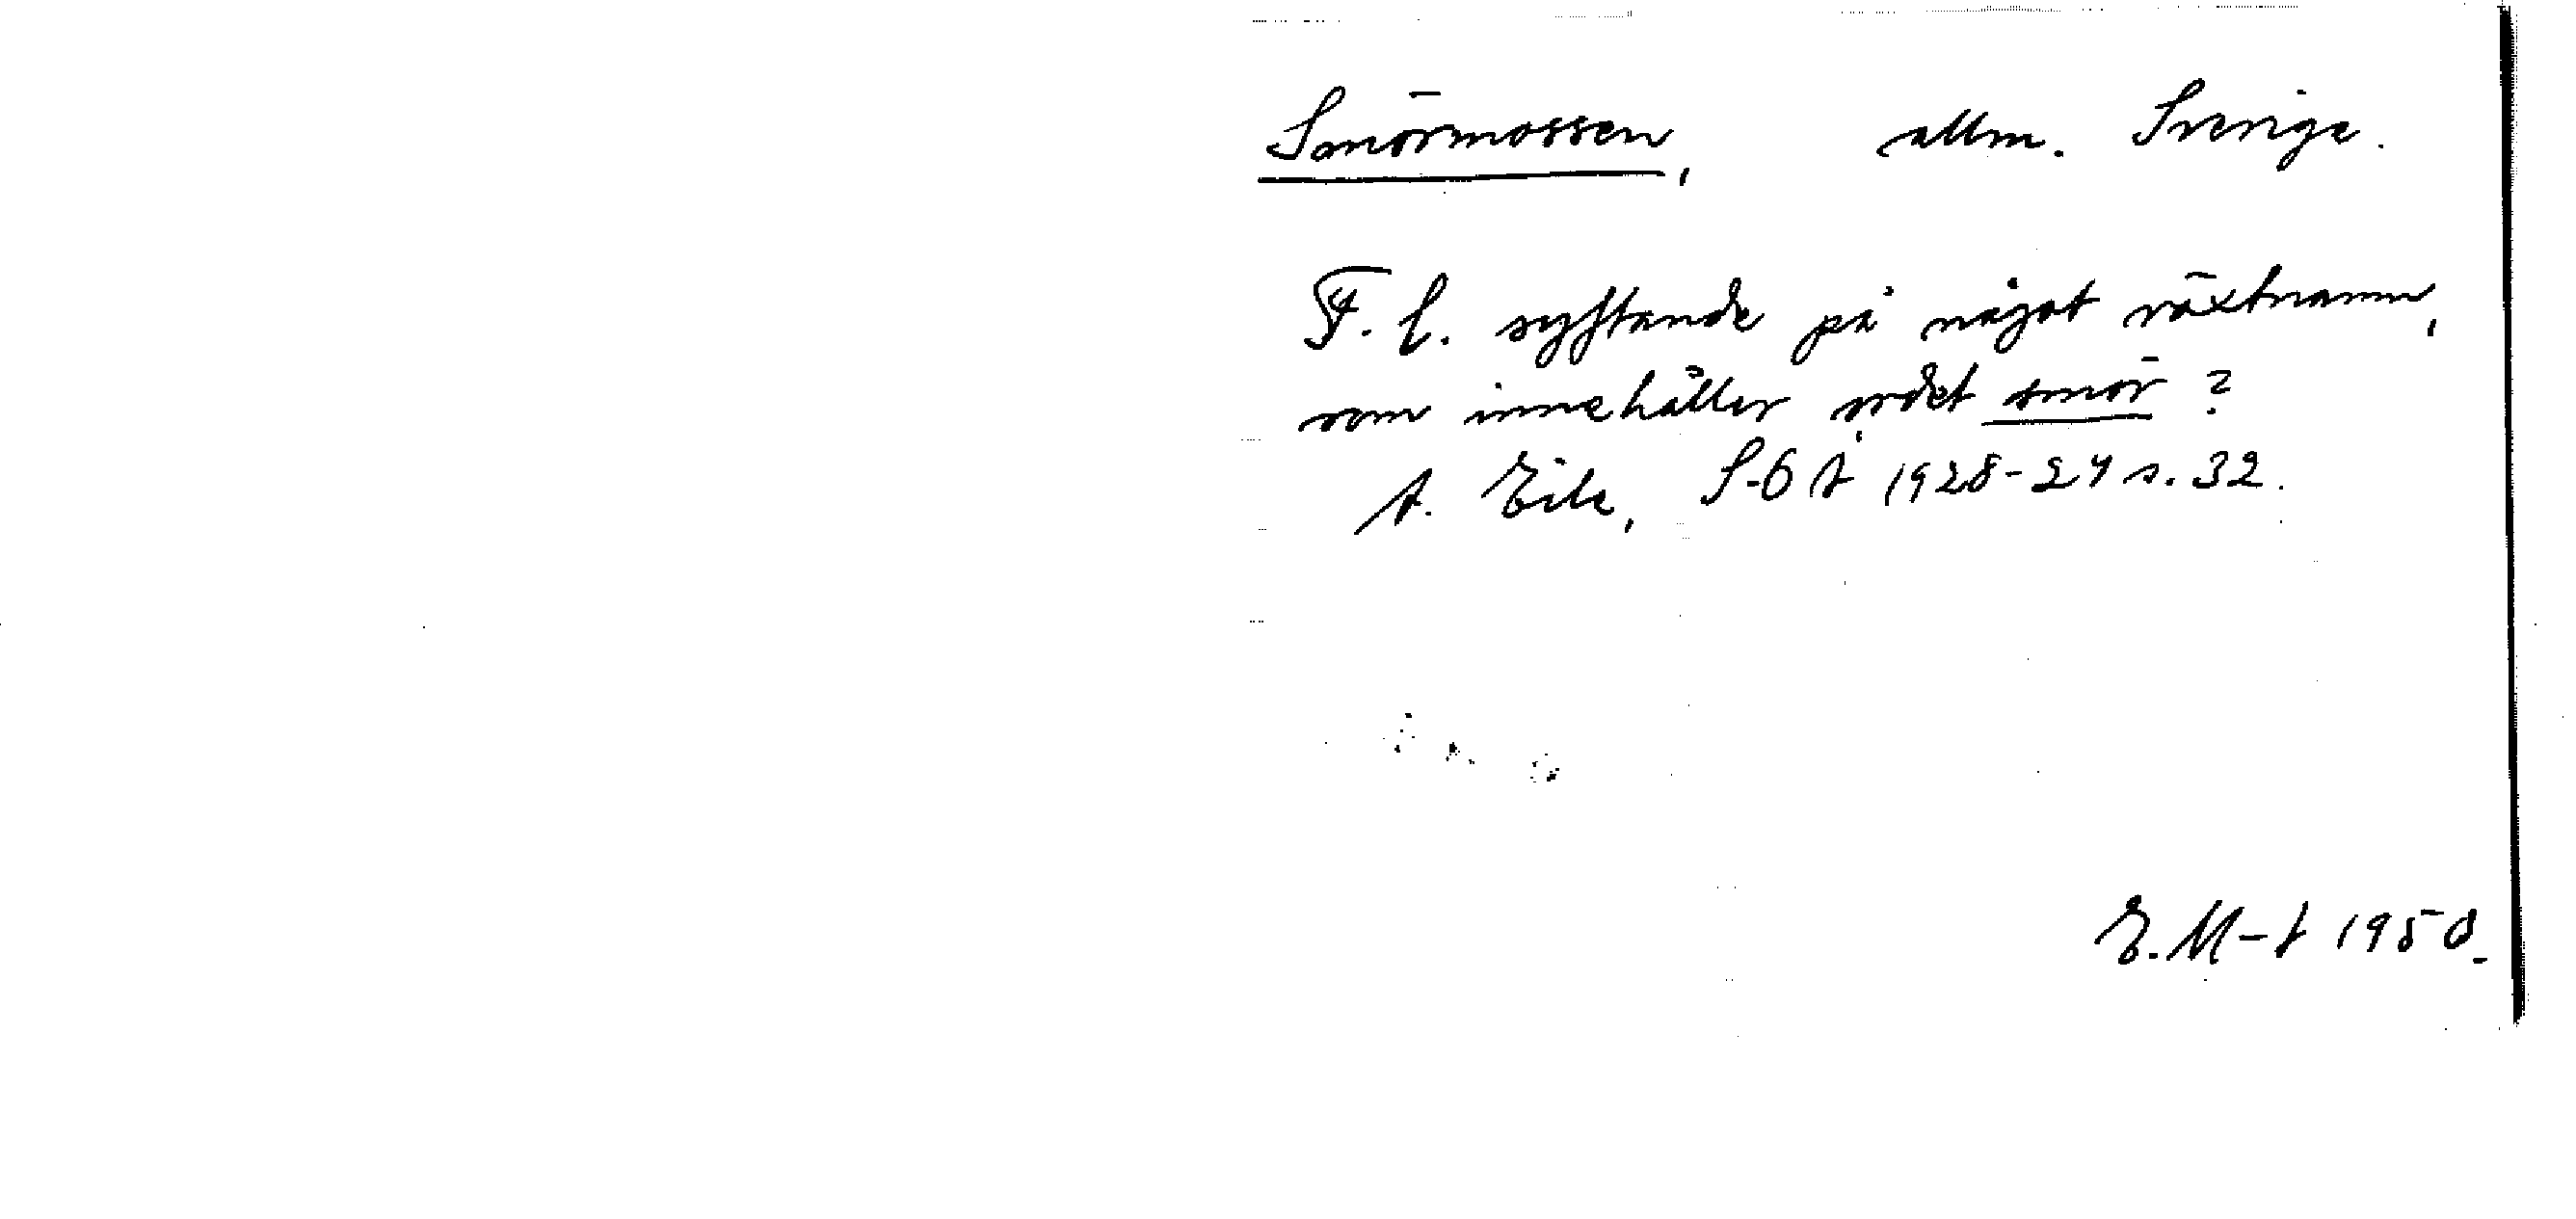 Smörmossen, allm. Sverige.
F. l. syftande på något växtnamn,
som innehåller ordet smör?
A. Eile, S-ÖÅ 1928-29 s. 32.
E. M-t 1950.